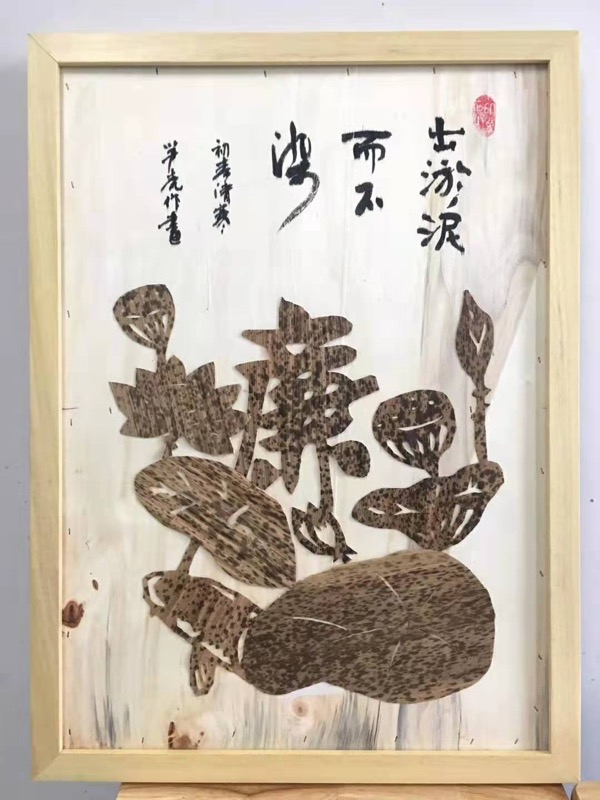 出淤泥
而不
染
初春清寒
笋壳作画
廉